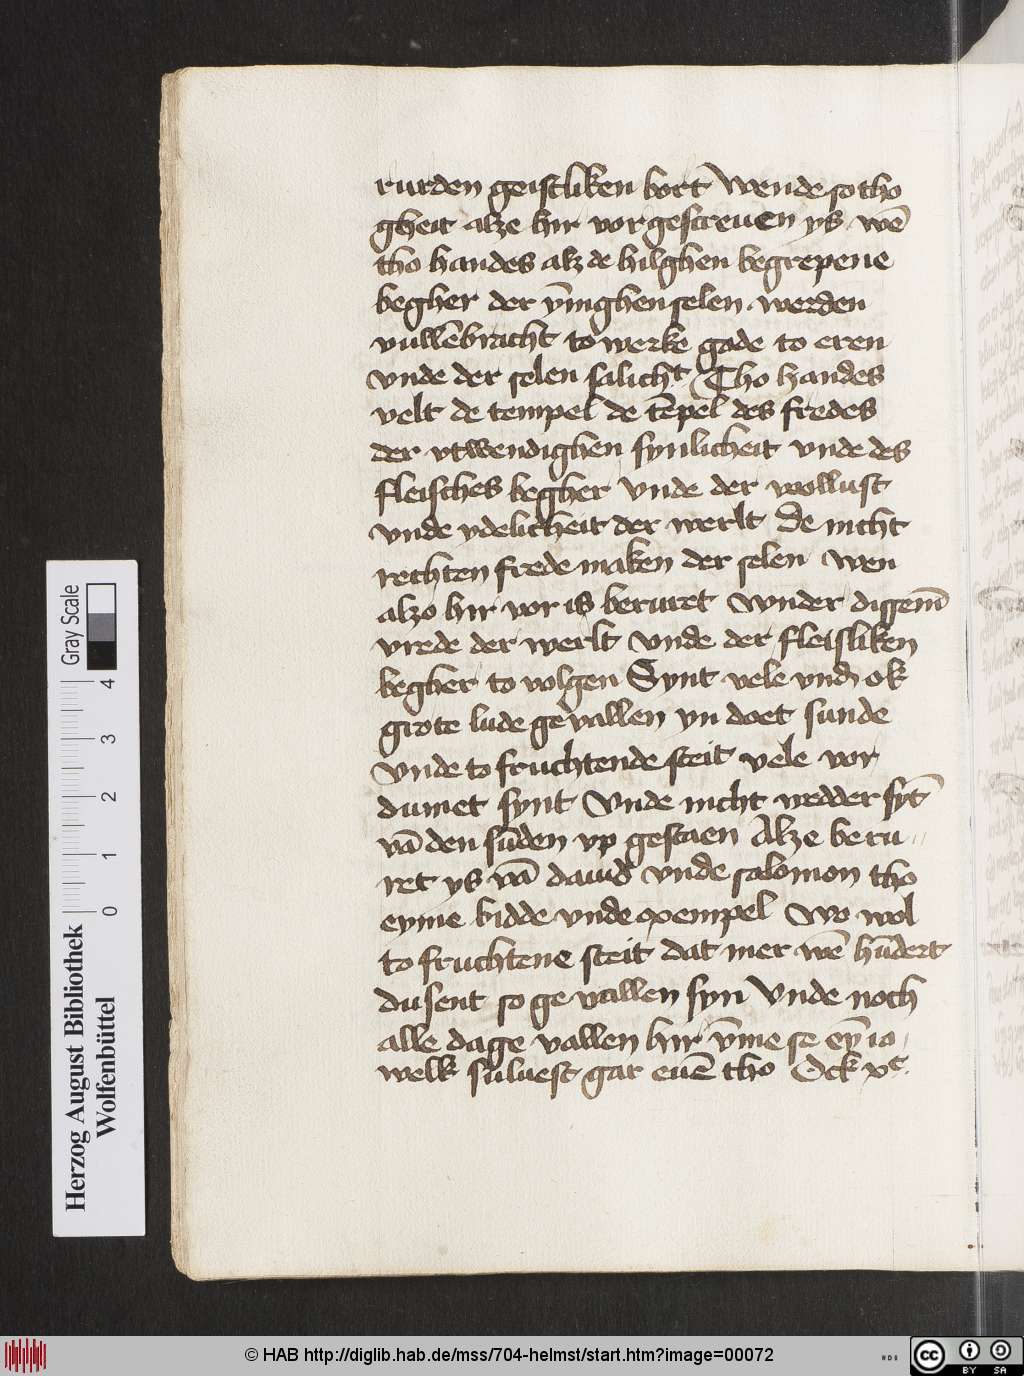 rurden geistliken bort Wende so tho
gheit alze hir vor gescreuen ys wē
tho handes alz de hilghen begrepene
begher der ȳnighen selen werden
vullēbracht to werke gode to eren
vnde der selen salichᵗ Tho handes
velt de tempel de tēpel des fredes
der vtwendighen synlicheit vnde des
fleisches begher vnde der wollust
vnde ydelicheit der werlt De nicht
rechten frede maken der selen wen
alzo hir vor is beruret Wnder dissem̄
vrede der werlt vnde der fleisliken
begher to volgen Synt vele vnd ok
grote lude ge vallen yn doet sunde
Vnde to fruchtende steit vele vor
dumet synt Vnde nicht wedder sȳt
vā den sūden vp gestaen Alze be ru〃
ret ys vā dauid vnde salomon tho
eyme bidde vnde exempel Wo wol
to fruchtene steit dat mer wē hūdert
dusent so ge vallen syn Vnde noch
alle dage vallen hir v̄me se eȳ io〃
welk suluest gar euē tho Ock xᶜ.
Herzog August Bibliothek
Wolfenbüttel
0 1 2 3 4
Gray Scale
© HAB http://diglib.hab.de/mss/704-helmst/start.htm?image=00072
HAB
cc BY SA